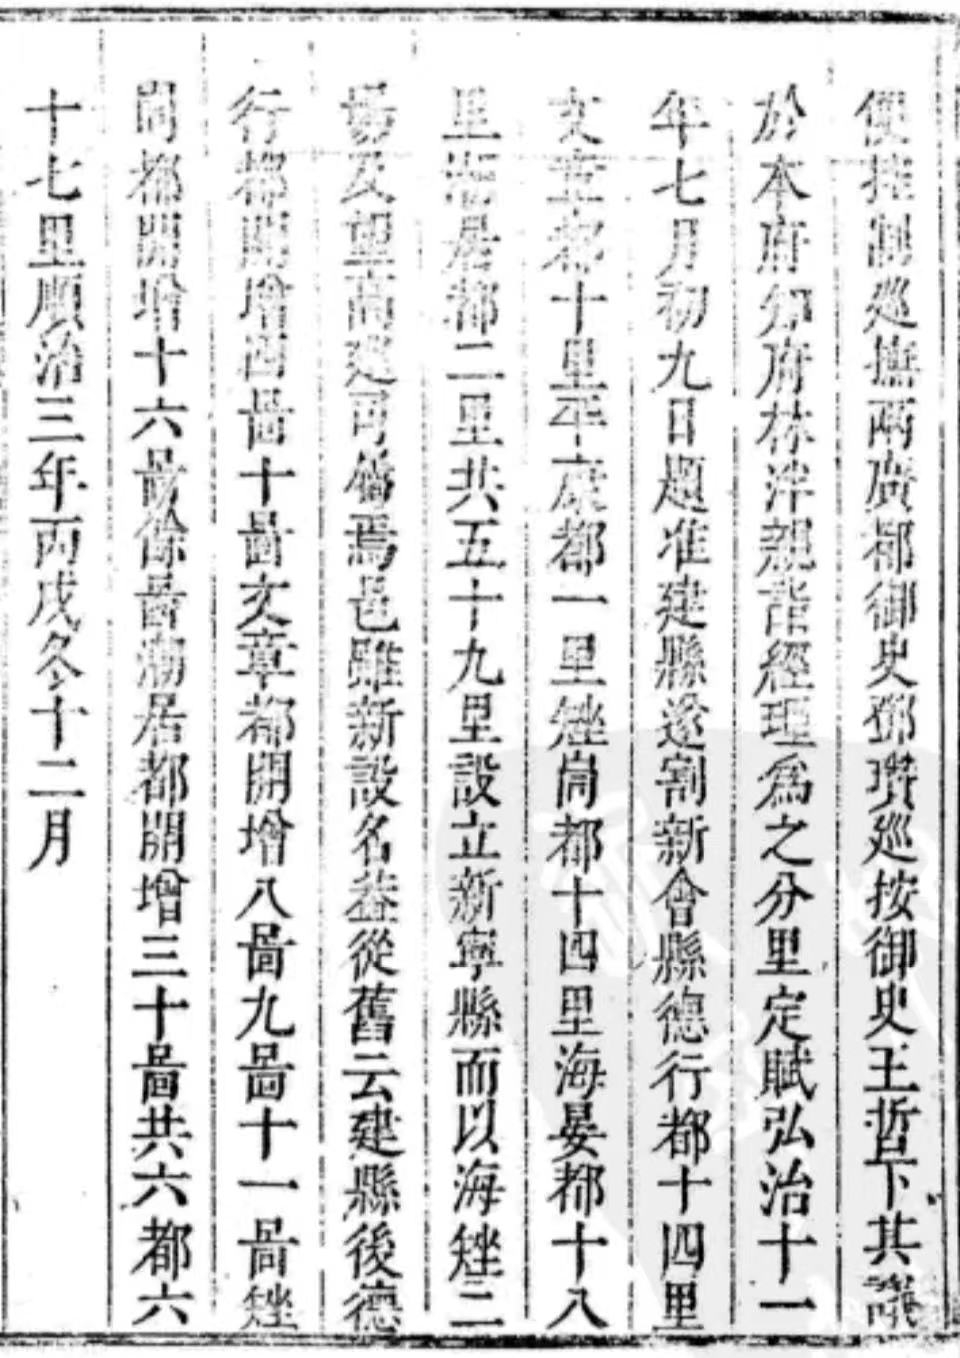 便控制巡撫兩廣都御史鄧琪巡按御史王哲下其議
於本府知府林泮親詣經理為之分里定賦弘治十一
年七月初九日題准建縣遂割新會縣德行都十四里
文章都十里平康都一里矬峝都十四里海晏都十八
里潮居都二里共五十九里設立新寧縣而以海矬二
塲及望高巡司屬焉邑雖新設名葢從舊云建縣後德
行都開增四啚十啚文章都開增八啚九啚十一啚矬
峝都開增十六啚除啚潮居都開增三十啚共六都六
十七里順治三年丙戌冬十二月